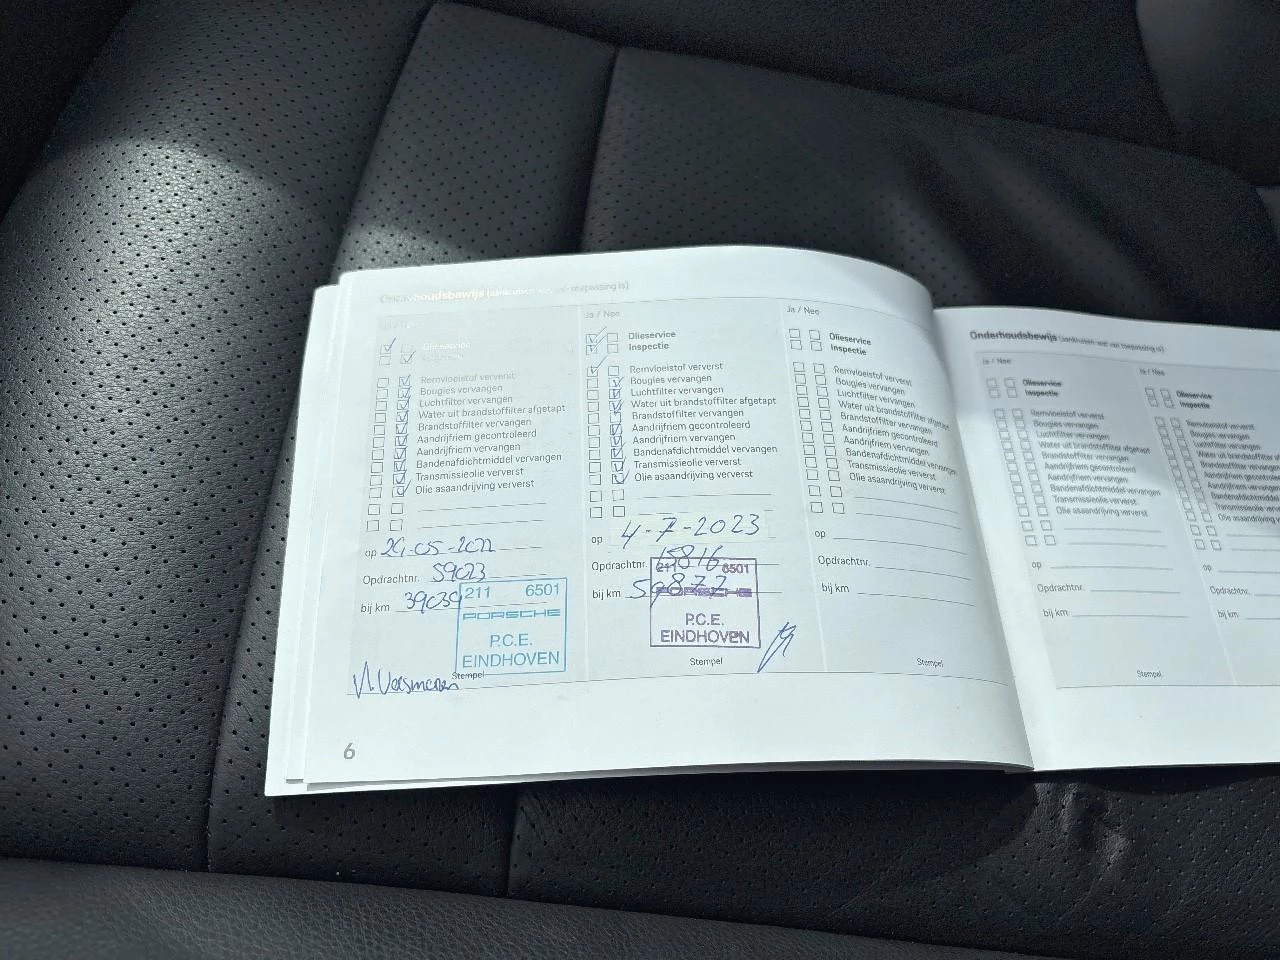 Onderhoudsbewijs (aankruisen wat van toepassing is)
Ja / Nee
Olieservice
Inspectie
Remvloeistof ververst
Bougies vervangen
Luchtfilter vervangen
Water uit brandstoffilter afgetapt
Brandstoffilter vervangen
Aandrijfriem gecontroleerd
Aandrijfriem vervangen
Bandenafdichtmiddel vervangen
Transmissieolie ververst
Olie asaandrijving ververst
op
Opdrachtnr. 59023
bij km 39039
211 6501
PORSCHE
P.C.E.
EINDHOVEN
Stempel
Ja / Nee
Olieservice
Inspectie
Remvloeistof ververst
Bougies vervangen
Luchtfilter vervangen
Water uit brandstoffilter afgetapt
Brandstoffilter vervangen
Aandrijfriem gecontroleerd
Aandrijfriem vervangen
Bandenafdichtmiddel vervangen
Transmissieolie ververst
Olie asaandrijving ververst
op 4-7-2023
Opdrachtnr. 15816
bij km 59877
211 6501
PORSCHE
P.C.E.
EINDHOVEN
Stempel
Ja / Nee
Olieservice
Inspectie
Remvloeistof ververst
Bougies vervangen
Luchtfilter vervangen
Water uit brandstoffilter afgetapt
Brandstoffilter vervangen
Aandrijfriem gecontroleerd
Aandrijfriem vervangen
Bandenafdichtmiddel vervangen
Transmissieolie ververst
Olie asaandrijving ververst
op
Opdrachtnr.
bij km
Stempel
6
Onderhoudsbewijs (aankruisen wat van toepassing is)
Ja / Nee
Olieservice
Inspectie
Remvloeistof ververst
Bougies vervangen
Luchtfilter vervangen
Water uit brandstoffilter afgetapt
Brandstoffilter vervangen
Aandrijfriem gecontroleerd
Aandrijfriem vervangen
Bandenafdichtmiddel vervangen
Transmissieolie ververst
Olie asaandrijving ververst
op
Opdrachtnr.
bij km
Stempel
Ja / Nee
Olieservice
Inspectie
Remvloeistof ververst
Bougies vervangen
Luchtfilter vervangen
Water uit
Brandstoffilter
Aandrijfriem
Aandrijfriem
Bandenafdichtmiddel
Transmissieolie
Olie asaandrijving
op
Opdrachtnr.
bij km